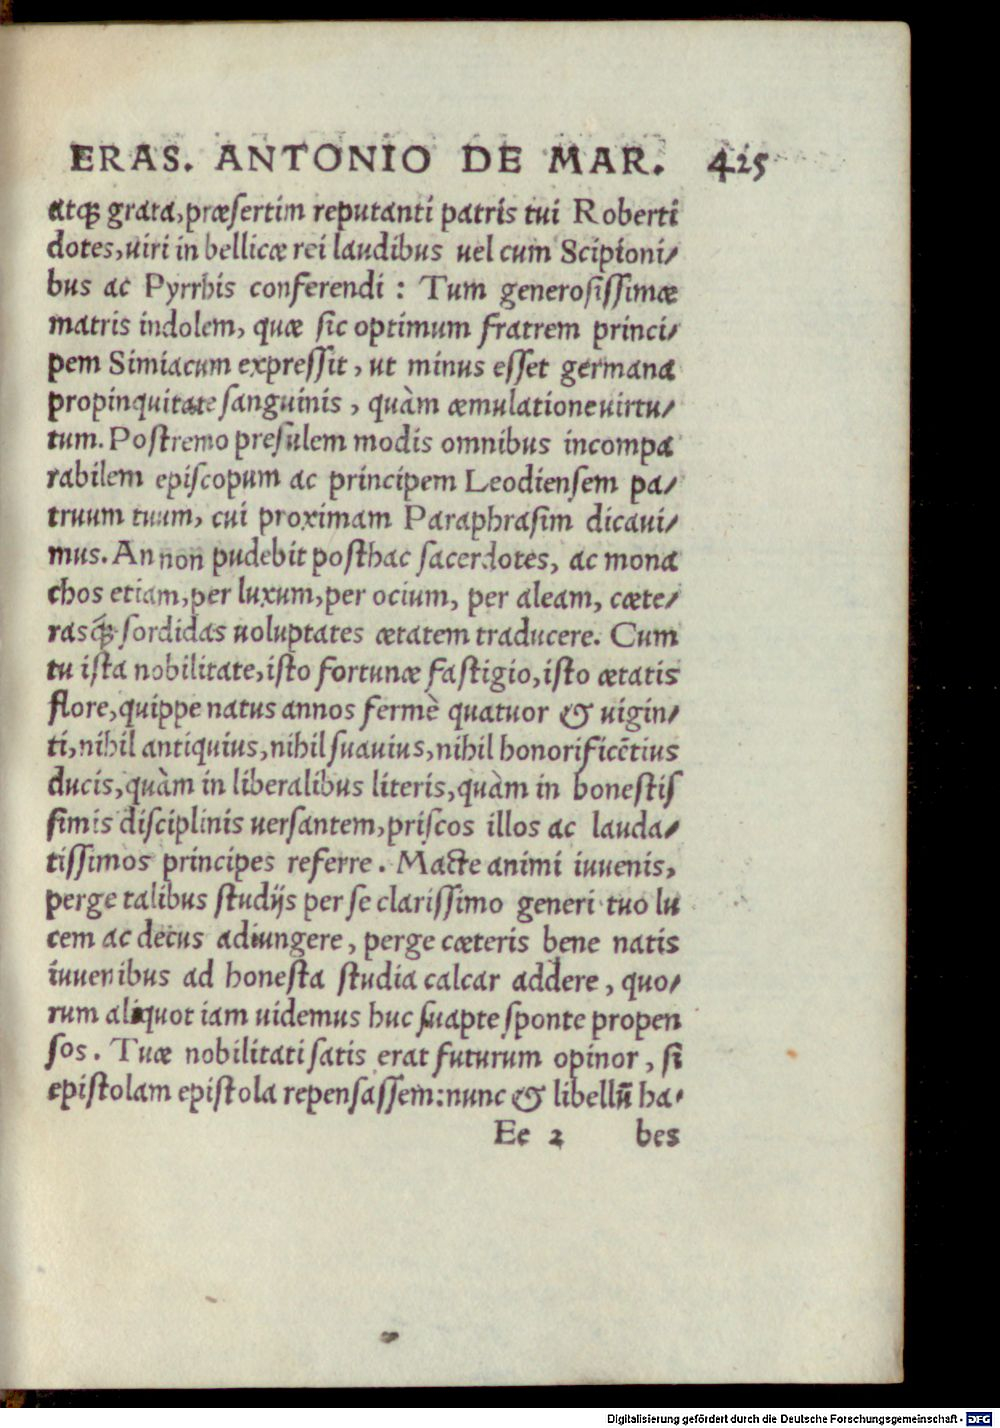 ERAS. ANTONIO DE MAR. 425
atqꝫ grata, præsertim reputanti patris tui Roberti
dotes, uiri in bellicæ rei laudibus uel cum Scipioni/
bus ac Pyrrhis conferendi : Tum generosissimæ
matris indolem, quæ sic optimum fratrem princi/
pem Simiacum expressit, ut minus esset germana
propinquitate sanguinis, quàm æmulatione uirtu/
tum. Postremo presulem modis omnibus incompa
rabilem episcopum ac principem Leodiensem pa/
truum tuum, cui proximam Paraphrasim dicaui/
mus. An non pudebit posthac sacerdotes, ac mona
chos etiam, per luxum, per ocium, per aleam, cæte/
rasqꝫ sordidas uoluptates ætatem traducere. Cum
tu ista nobilitate, isto fortunæ fastigio, isto ætatis
flore, quippe natus annos fermè quatuor & uigin/
ti, nihil antiquius, nihil suauius, nihil honorificẽtius
ducis, quàm in liberalibus literis, quàm in honestis
simis disciplinis uersantem, priscos illos ac lauda/
tissimos principes referre. Macte animi iuuenis,
perge talibus studijs per se clarissimo generi tuo lu
cem ac decus adiungere, perge cæteris bene natis
iuuenibus ad honesta studia calcar addere, quo/
rum aliquot iam uidemus huc suapte sponte propen
sos. Tuæ nobilitati satis erat futurum opinor, si
epistolam epistola repensassem: nunc & libellũ ha/
Ee 2 bes
Digitalisierung gefördert durch die Deutsche Forschungsgemeinschaft - DFG